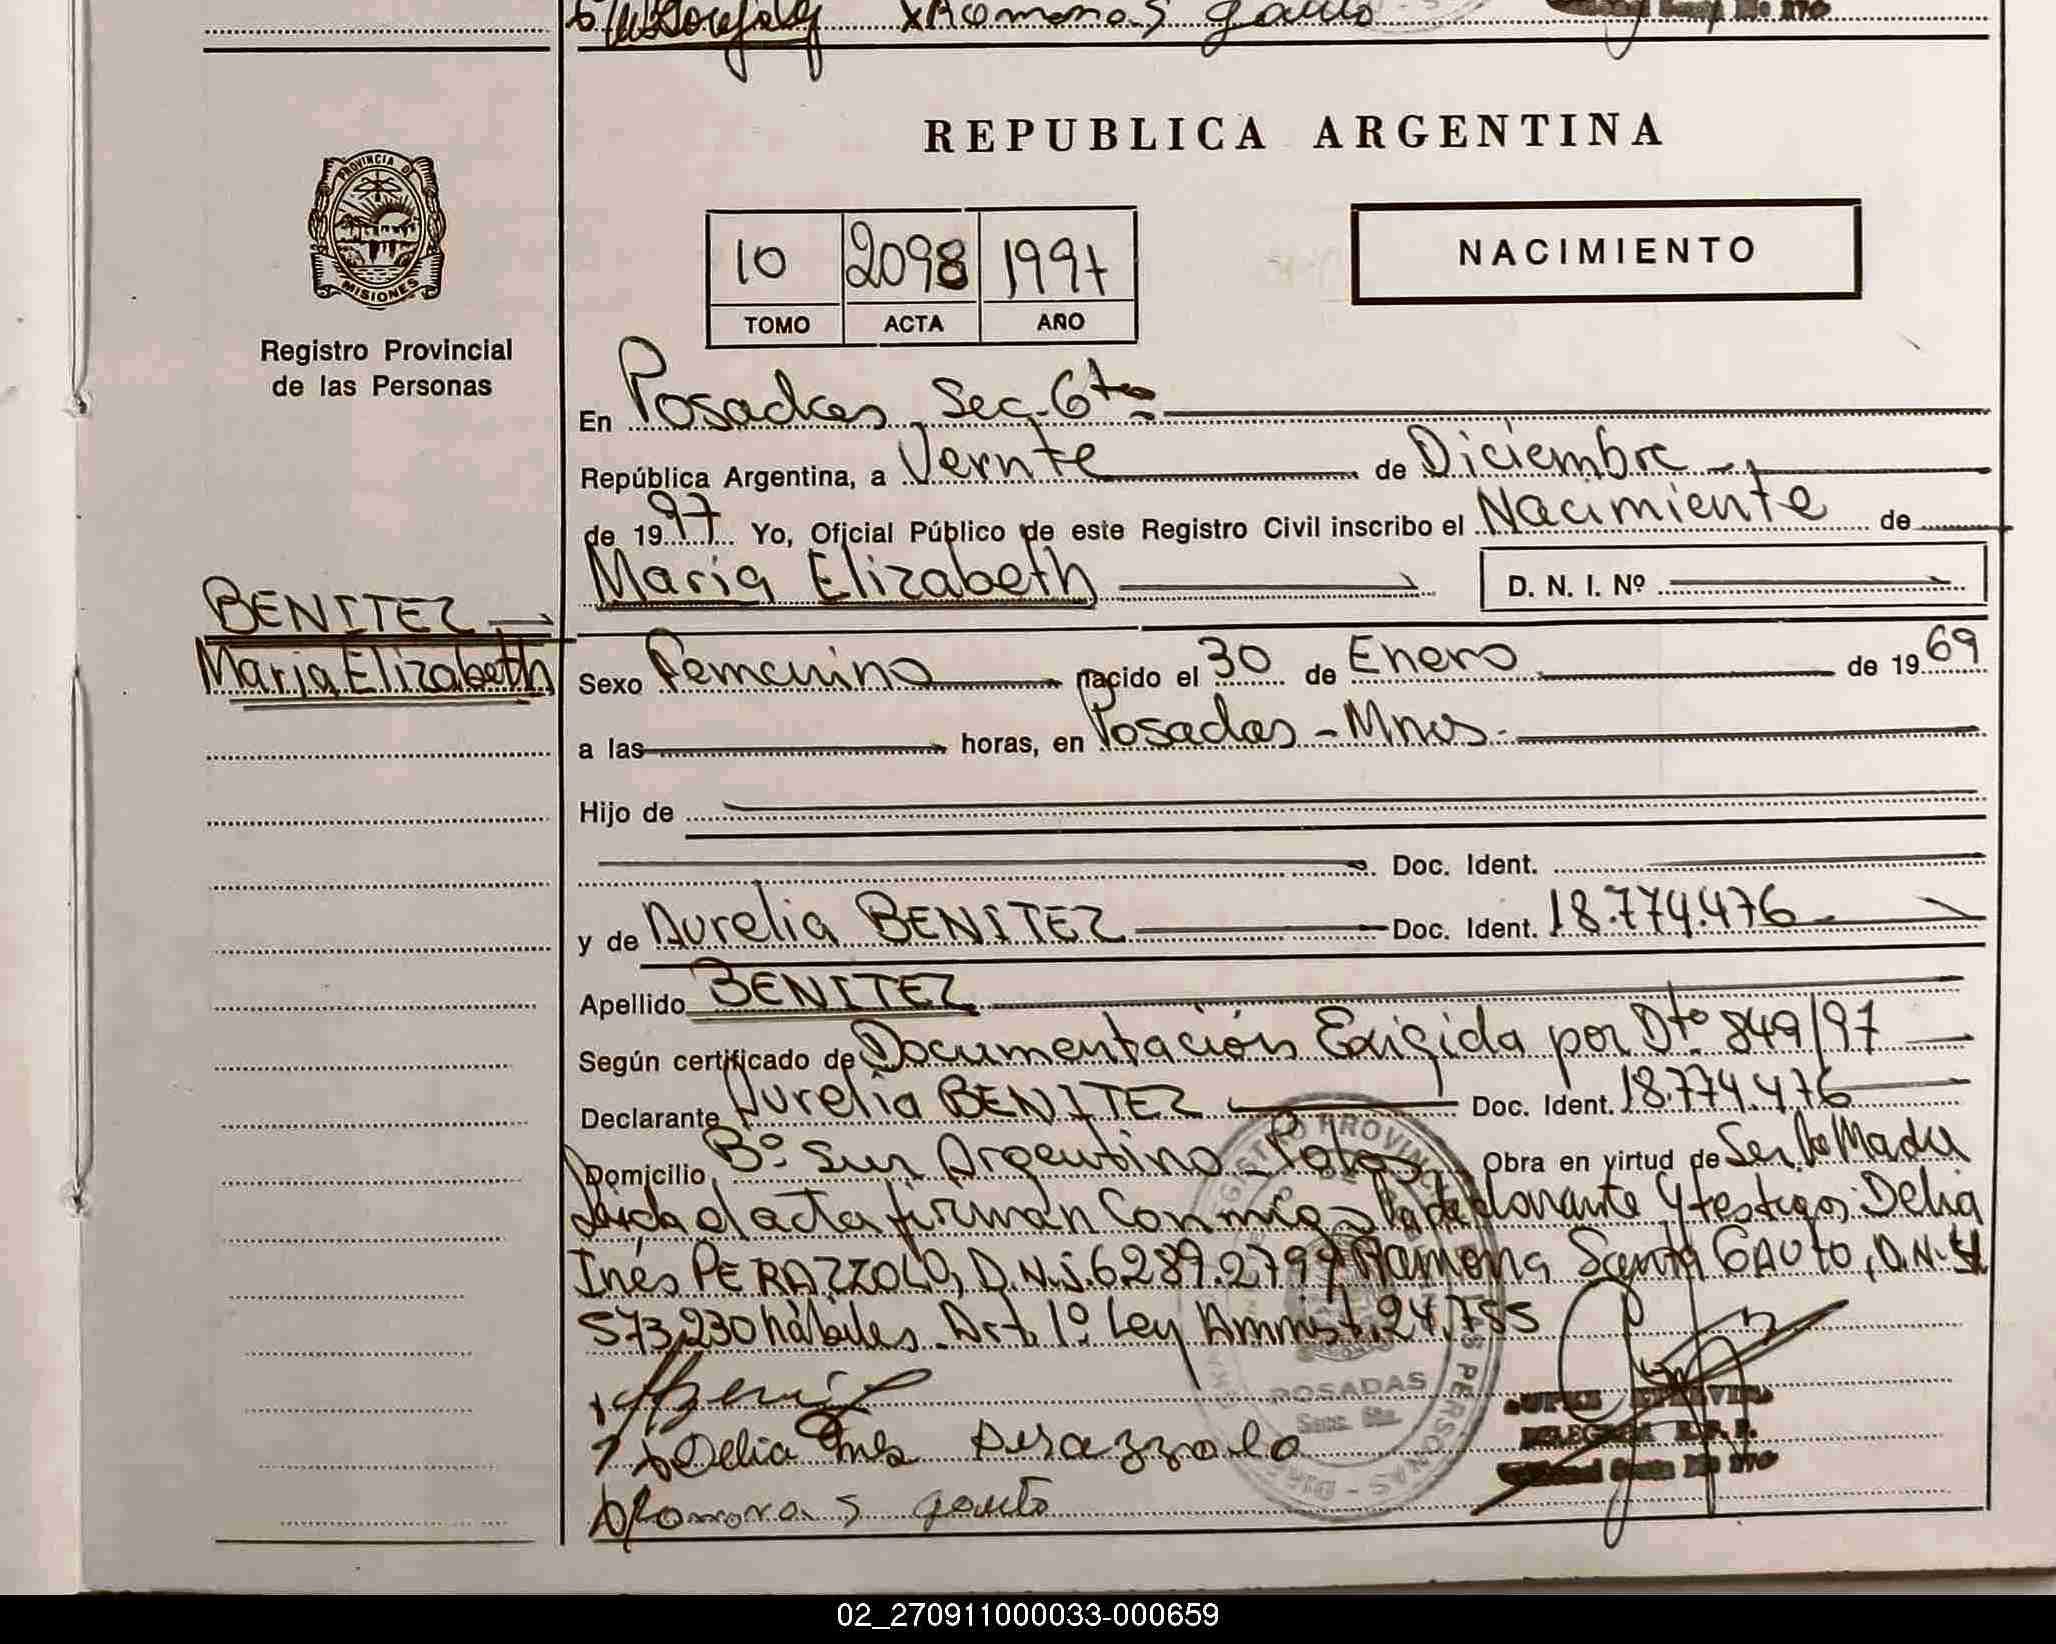 Ramona S gauto
REPUBLICA ARGENTINA
PROVINCIA DE
MISIONES
Registro Provincial
de las Personas
10 2098 1997
TOMO ACTA AÑO
NACIMIENTO
En Posadas Sec. 6ta
República Argentina, a Veinte de Diciembre
de 1997 Yo, Oficial Público de este Registro Civil inscribo el Nacimiento de
Maria Elizabeth D. N. I. Nº
BENITEZ
Maria Elizabeth
Sexo Femenino nacido el 30 de Enero de 1969
a las horas, en Posadas - Mnes.
Hijo de
Doc. Ident.
y de Aurelia BENITEZ Doc. Ident. 18.774.476
Apellido BENITEZ
Según certificado de Documentación Exigida por Dto. 849/97
Declarante Aurelia BENITEZ Doc. Ident. 18.774.476
Domicilio Bº Sur Argentino - Pdas Obra en virtud de Ser la Madre
Leida el acta firman Conmigo la declarante y testigos: Delia
Inés PERAZZOLO, D.N.I. 6.289.279 y Ramona Santa GAUTO, D.N.I.
573.230 hábiles. Art. 1º Ley Amnist. 24.755
Delia Ines Perazzolo
Ramona S gauto
POSADAS
Secc. 6ta.
DELEGADA R.P.P.
02_270911000033-000659